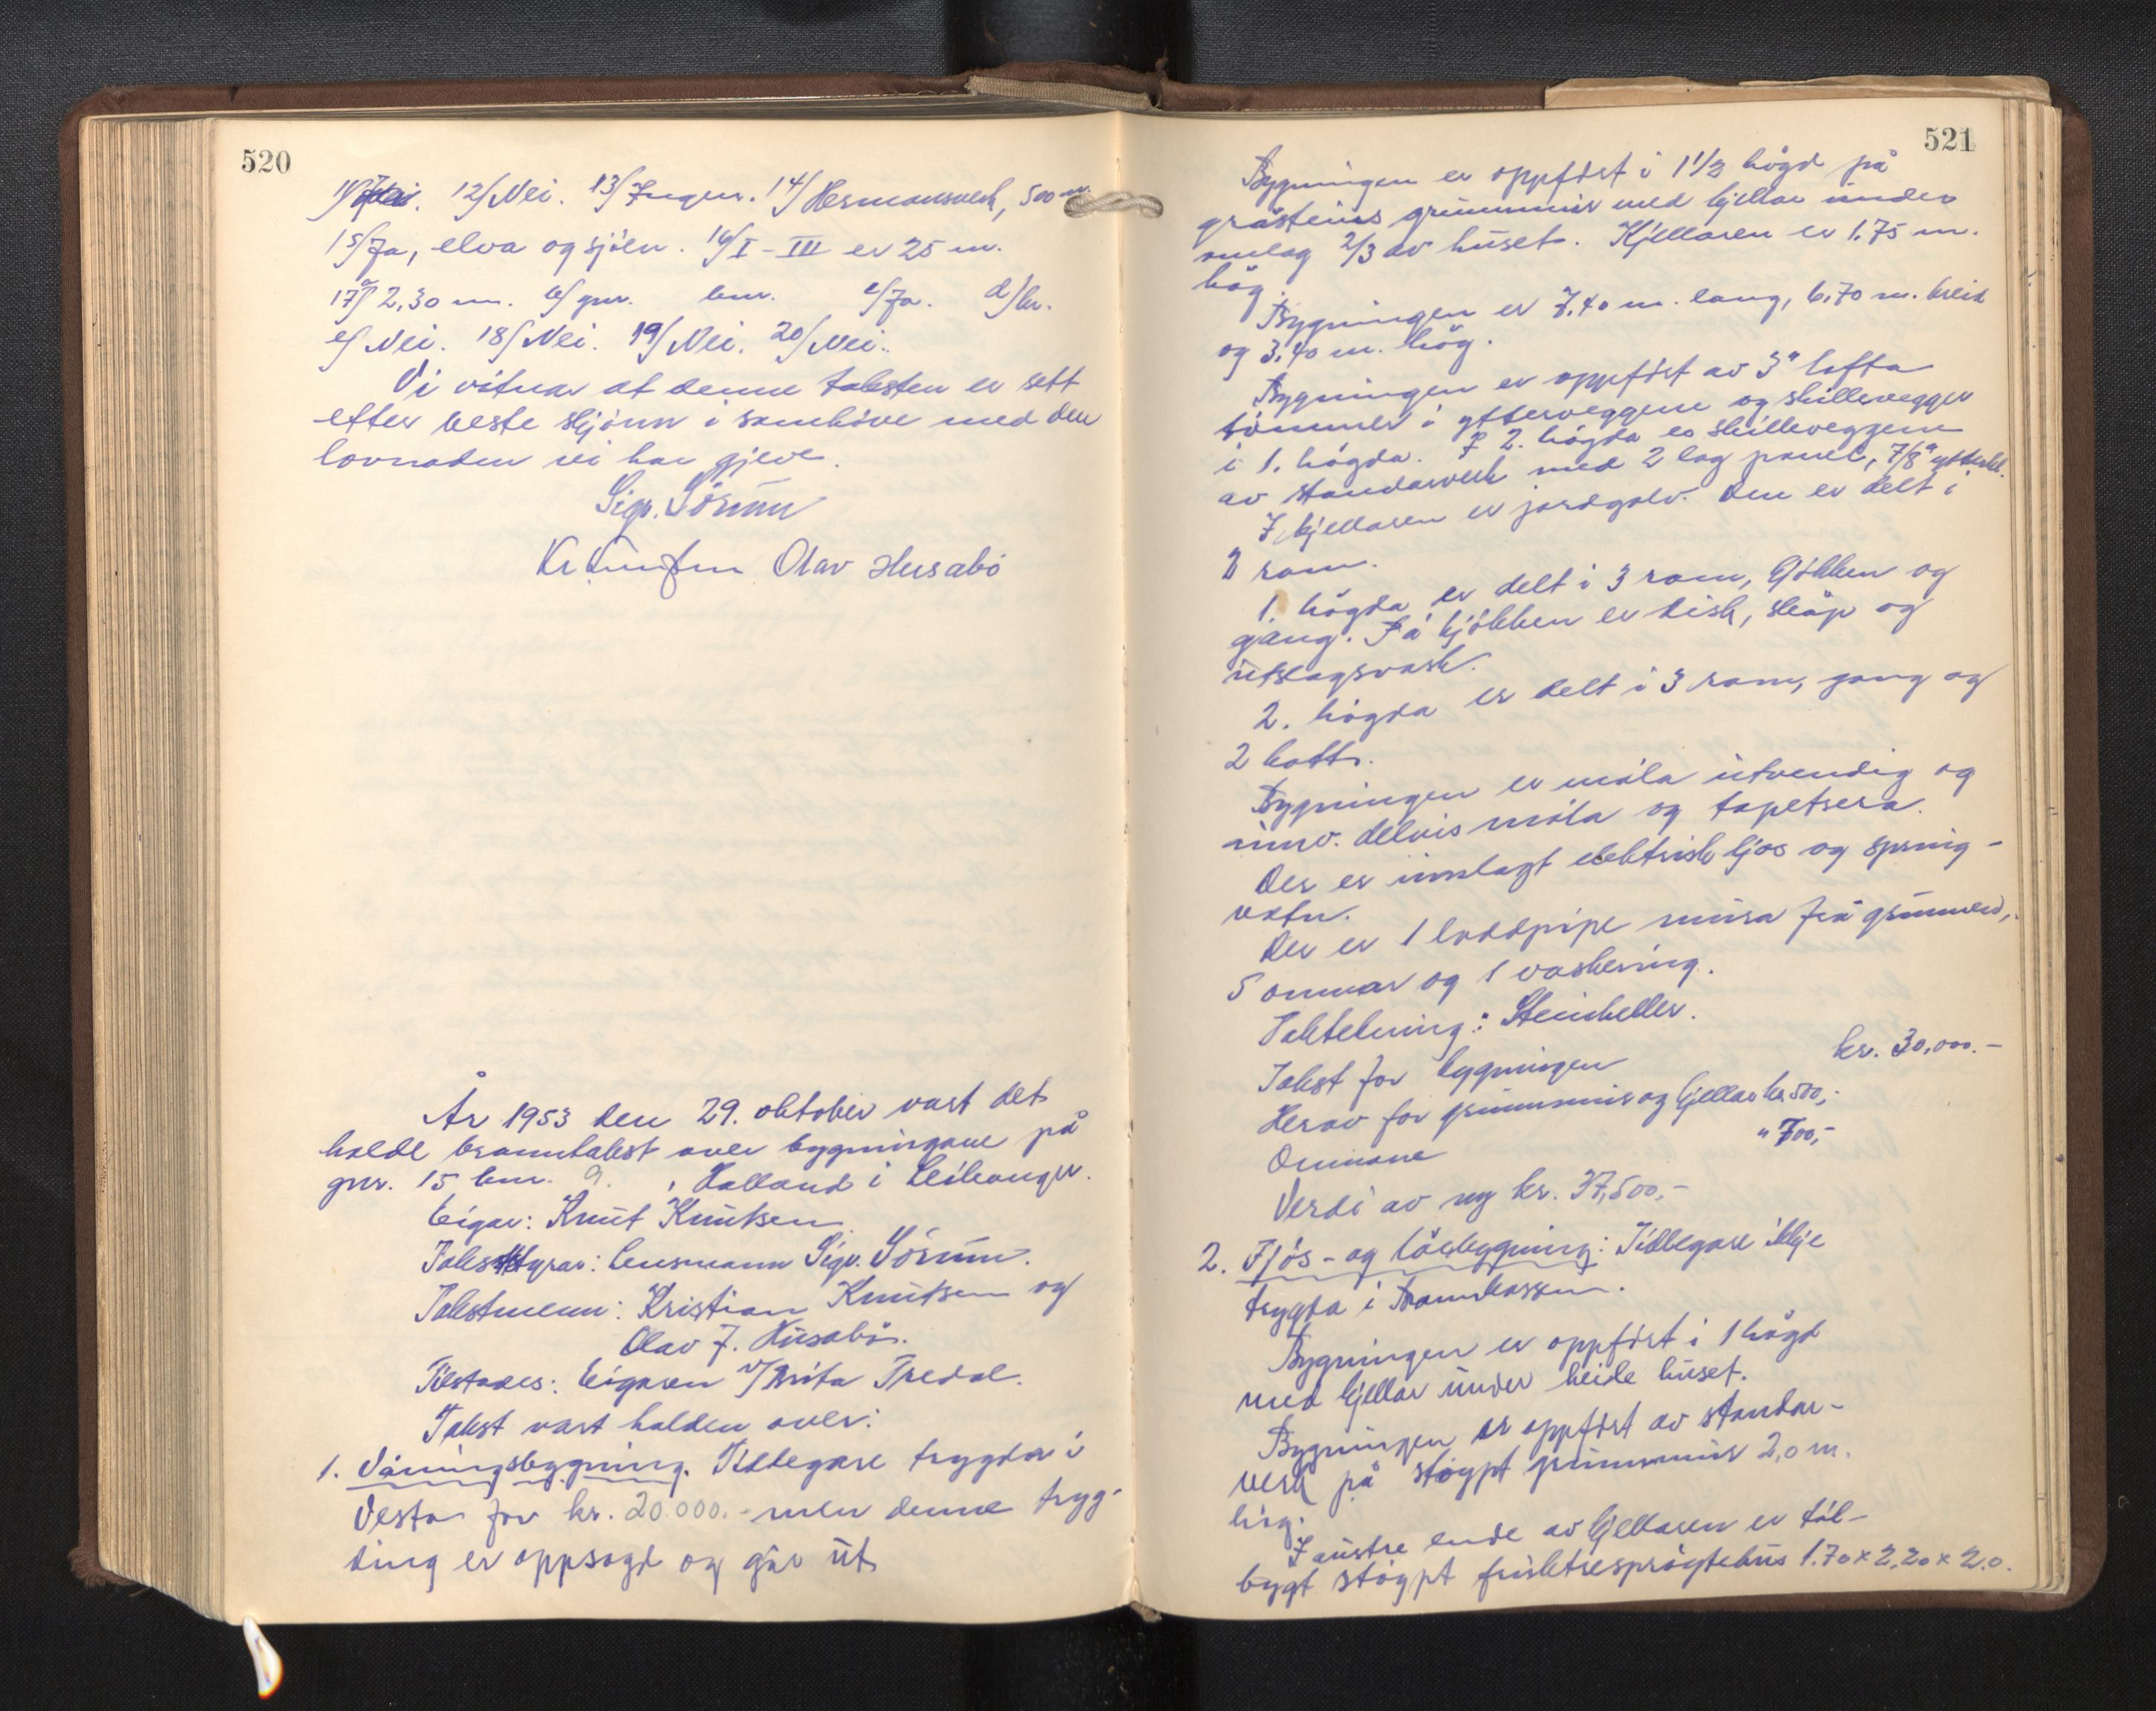 520
11/ Nei. 12/ Nei. 13/ Ingen. 14/ Hermansverk, 500 m.
15/ Ja, elva og sjöen. 16/ I - III er 25 m.
17/ a/ 2,30 m. b/ gnr. bnr. c/ Ja. d/ kr.
e/ Nei. 18/ Nei. 19/ Nei. 20/ Nei.
Vi vitnar at denne taksten er sett
etter beste skjönn i samhöve med den
lovnaden vi har gjeve.
Sigv. Sörum
Kr Knutsen Olav Husabö
År 1953 den 29. oktober vart det
halde branntakst over bygningane på
gnr. 15 bnr. 9. , Halland i Leikanger.
Eigar: Knut Knutsen
Takststyrar: Lensmann Sigv. Sörum.
Takstmenn: Kristian Knutsen og
Olav J. Husabö.
Tilstades: Eigaren v/ Brita Tredal.
Takst vart halden over:
1. Våningsbygning. Tidlegare trygda i
Vesta for kr. 20.000.- men denne tryg-
ding er oppsagd og går ut
521
Bygningen er oppfört i 1 1/2 högd på
gråsteins grunnmur med kjellar under
omlag 2/3 av huset. Kjellaren er 1.75 m.
hög.
Bygningen er 7.40 m. lang, 6.70 m. breid
og 3.40 m. hög.
Bygningen er oppfört av 3" lafta
tömmer i ytterveggene og skillevegger
i 1. högda. I 2. högda er skilleveggene
av standarverk med 2 lag panel, 7/8" ytterkl.
I kjellaren er jordgolv. Den er delt i
2 rom.
1. högda er delt i 3 rom, kjökken og
gang. På kjökken er disk, skåp og
utslagsvask.
2. högda er delt i 3 rom, gang og
2 kott.
Bygningen er måla utvendig og
innv. delvis måla og tapetsera.
Der er innlagt elektrisk ljos og spring-
vatn.
Der er 1 loddpipe mura frå grunnen,
5 omnar og 1 vaskering.
Taktekning: Steinheller.
Takst for bygningen kr. 30.000.-
Herav for grunnmur og kjellar kr. 500,-
Omnane " 700,-
Verdi av ny kr. 37,500.-
2. Fjös- og löebygning: Tidlegare ikkje
trygda i Brannkassen.
Bygningen er oppfört i 1 högd
med kjellar under heile huset.
Bygningen er oppfört av standar-
verk på stöypt grunnmur 2,0 m.
hög.
I austre ende av kjellaren er til-
bygt stöypt frukttresprögtehus 1.70 x 2,20 x 2.0.